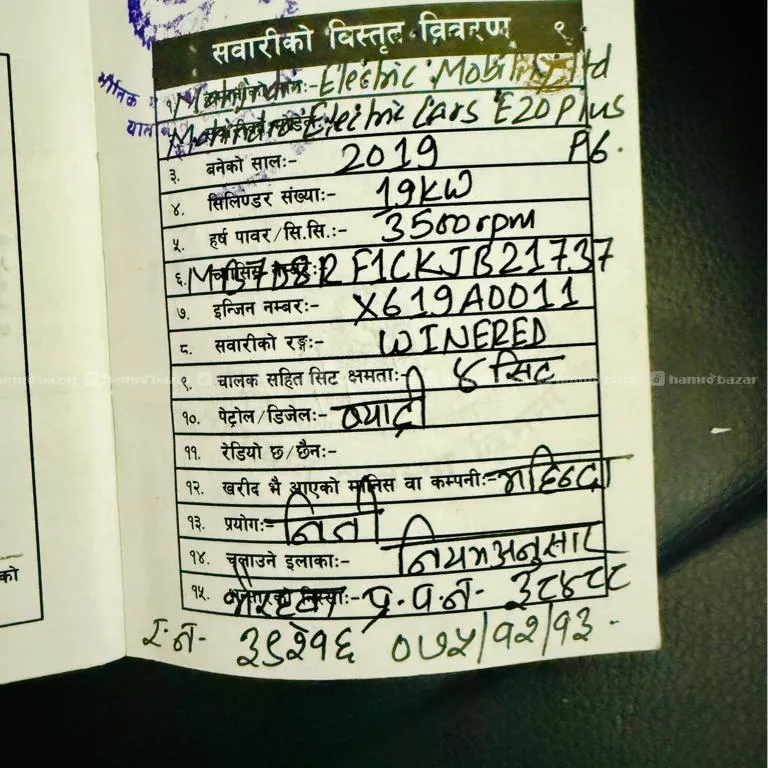 सवारीको विस्तृत विवरण ९
१. Mahindra Electric Mobility ltd
Mahindra Electric Cars E20 Plus
३. बनेको साल:- 2019 P6.
४. सिलिण्डर संख्या:- 19KW
५. हर्ष पावर/सि.सि.:- 3500rpm
६. MB7B8RF1CKJB21737
७. इन्जिन नम्बर:- X619A0011
८. सवारीको रङ्ग:- WINERED
९. चालक सहित सिट क्षमता:- ४ सिट
१०. पेट्रोल/डिजेल:- ब्याट्री
११. रेडियो छ/छैन:-
१२. खरीद भै आएको मानिस वा कम्पनी:- महिन्द्रा
१३. प्रयोग:- निजी
१४. चलाउने इलाका:- नियमअनुसार
१५. प्र.प.न- ३८४८८
र.न- ३९२१६ ०७५/१२/१३.
hamro bazar
hamro bazar
को